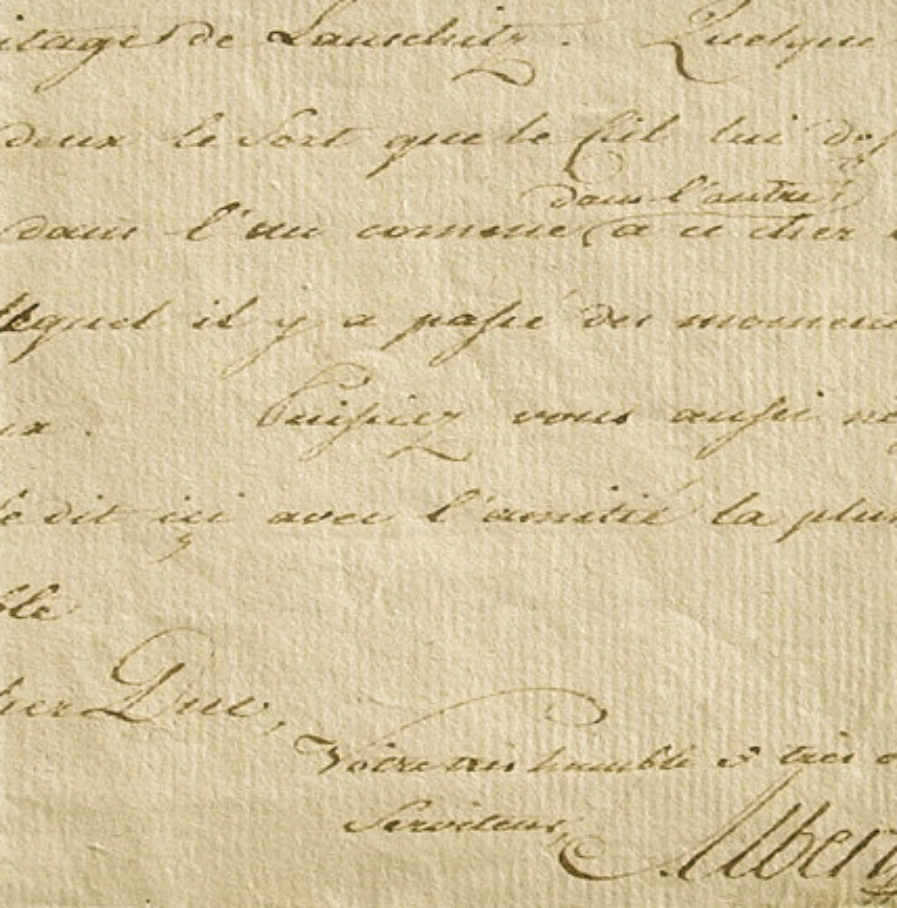 de Lauschitz. Quelque
deux le Sort que le Ciel lui
dans l'autre
dans l'un comme a ce cher
lequel il y a passé des momens
Puissiez vous aussi
dit ici avec l'amitié la plus
ble
her Duc,
Vôtre très humble & très
Serviteur,
Albert